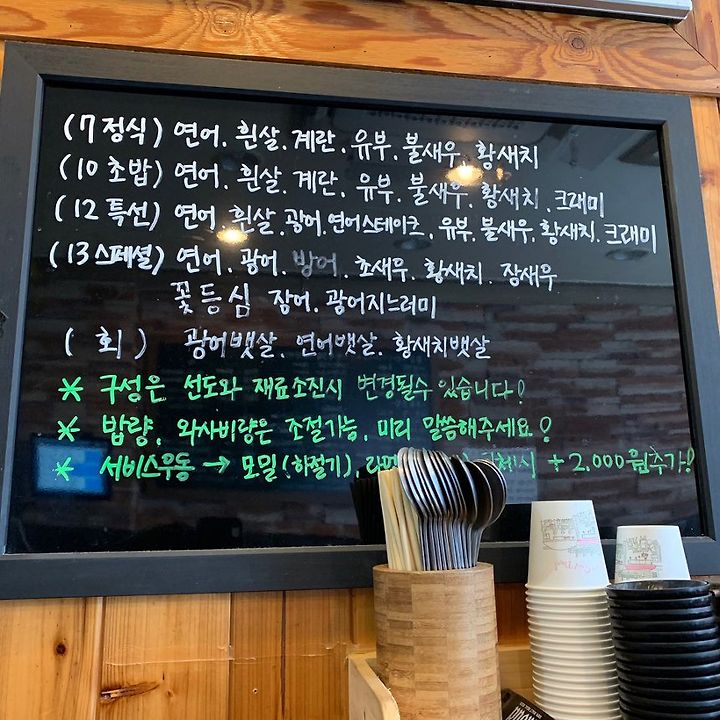 (7 정식) 연어. 흰살. 계란. 유부. 불새우. 황새치
(10 초밥) 연어. 흰살. 계란. 유부. 불새우. 황새치. 크래미
(12 특선) 연어. 흰살. 광어. 연어스테이크. 유부. 불새우. 황새치. 크래미
(13 스페셜) 연어. 광어. 방어. 초새우. 황새치. 장새우
꽃등심 장어. 광어지느러미
( 회 ) 광어뱃살. 연어뱃살. 황새치뱃살
* 구성은 선도와 재료소진시 변경될수 있습니다!
* 밥량, 와사비량은 조절가능, 미리 말씀해주세요!
* 서비스우동 → 모밀(하절기) + 2.000원추가!